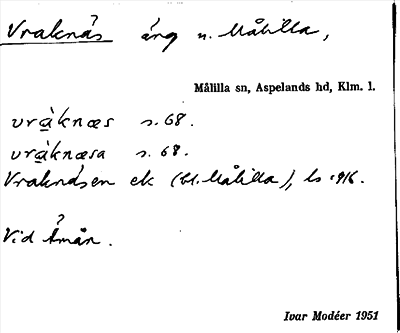 Vraknäs äng n. Målilla,
Målilla sn, Aspelands hd, Klm. l.
vràknæs s. 68.
vràknæsa s. 68.
Vraknäsen ek (bl. Målilla), ls 1916.
?
Vid Åmån.
Ivar Modéer 1951